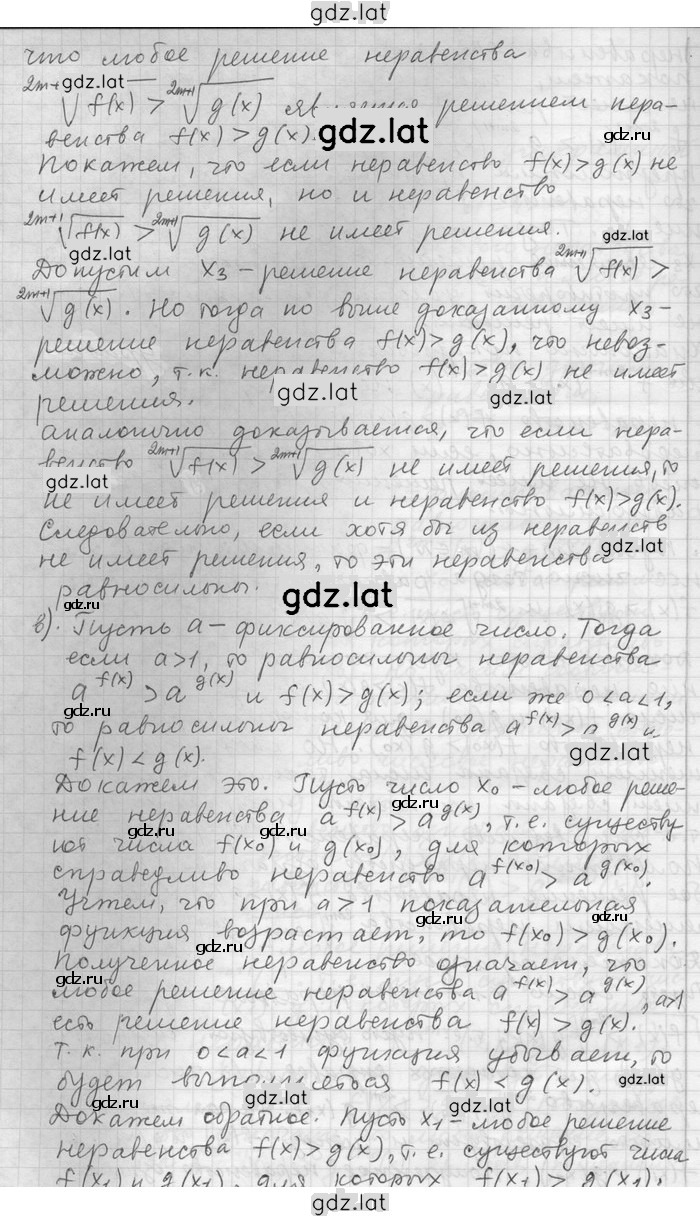 gdz.lat
что любое решение неравенства
gdz.lat
²ᵐ⁺¹√f(x) > ²ᵐ⁺¹√g(x) решением нера-
венства f(x) > g(x).
gdz.lat
gdz.lat
Покажем, что если неравенство f(x) > g(x) не
имеет решения, но и неравенство
²ᵐ⁺¹√f(x) > ²ᵐ⁺¹√g(x) не имеет решения.
gdz.lat
gdz.lat
Допустим x₃ - решение неравенства ²ᵐ⁺¹√f(x) >
²ᵐ⁺¹√g(x). Но тогда по выше доказанному x₃-
решение неравенства f(x) > g(x), что невоз-
можно, т.к. неравенство f(x) > g(x) не имеет
gdz.lat
gdz.lat
решения.
Аналогично доказывается, что если нера-
венство ²ᵐ⁺¹√f(x) > ²ᵐ⁺¹√g(x) не имеет решения, то
gdz.lat
не имеет решения и неравенство f(x) > g(x).
Следовательно, если хотя бы из неравенств
gdz.lat
не имеет решения, то эти неравенства
равносильны.
gdz.lat
gdz.ru
в). Пусть a - фиксированное число. Тогда
если a > 1, то равносильны неравенства
a^f(x) > a^g(x) и f(x) > g(x); если же 0 < a < 1,
gdz.lat
то равносильны неравенства a^f(x) > a^g(x) и
f(x) < g(x).
gdz.lat
Докажем это. Пусть число x₀ - любое реше-
ние неравенства a^f(x) > a^g(x), т.е. существу
gdz.ru
gdz.ru
gdz.ru
ют числа f(x₀) и g(x₀), для которых
справедливо неравенство a^f(x₀) > a^g(x₀).
gdz.ru
Учтем, что при a > 1 показательная
функция возрастает, то f(x₀) > g(x₀).
gdz.ru
gdz.ru
Полученное неравенство означает, что
gdz.ru
любое решение неравенства a^f(x) > a^g(x), a>1
gdz.ru
есть решение неравенства f(x) > g(x).
Т.к. при 0 < a < 1 функция убывает, то
будет f(x) < g(x).
gdz.lat
gdz.lat
gdz.lat
Докажем обратное. Пусть x₁ - любое решение
неравенства f(x) > g(x), т.е. существуют числа
f(x₁) и g(x₁), для которых f(x₁) > g(x₁).
gdz.lat